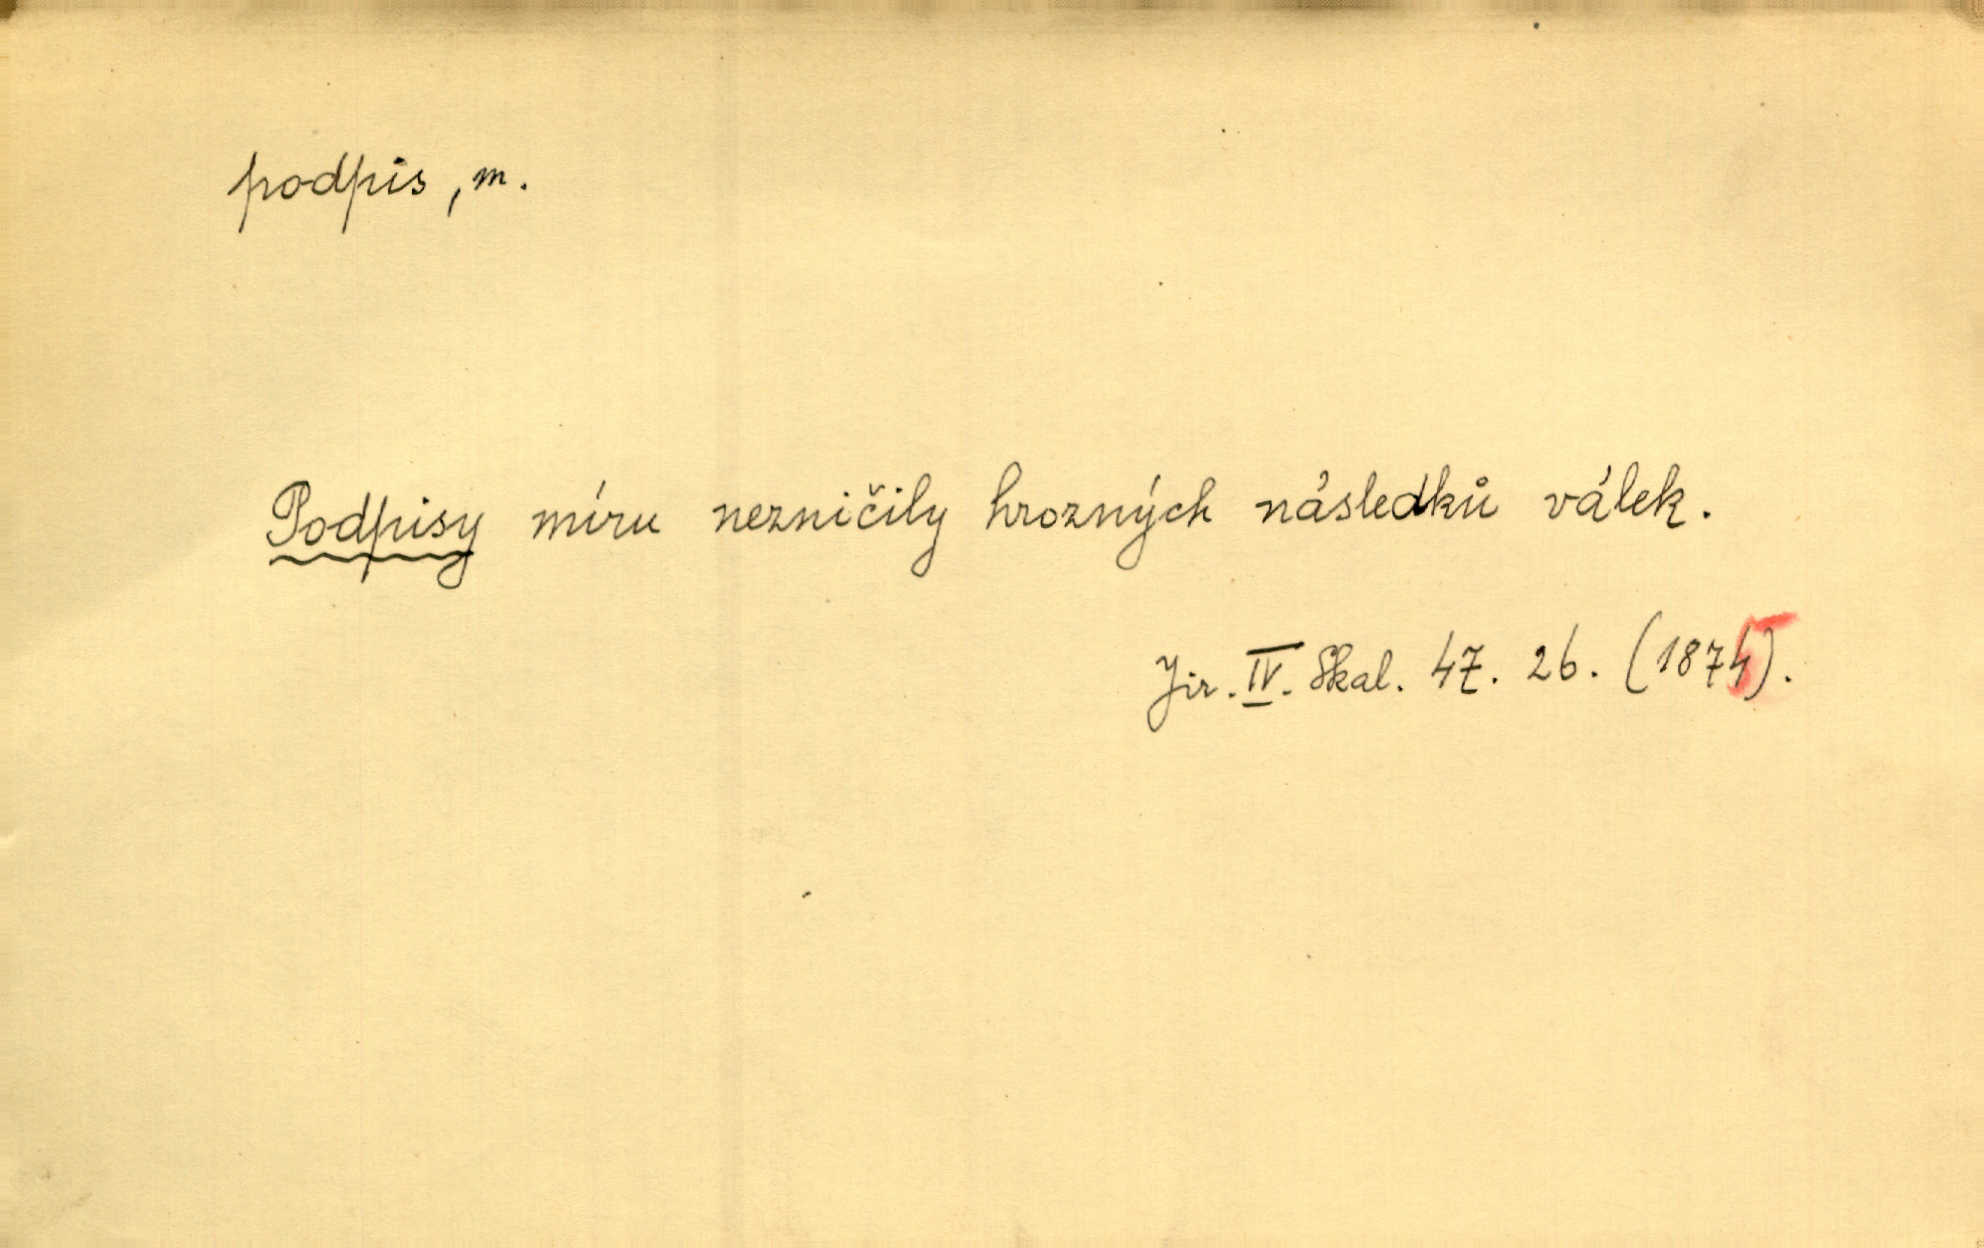 podpis, m.
Podpisy míru nezničily hrozných následků válek.
Jir. IV. Skal. 47. 26. (1875).